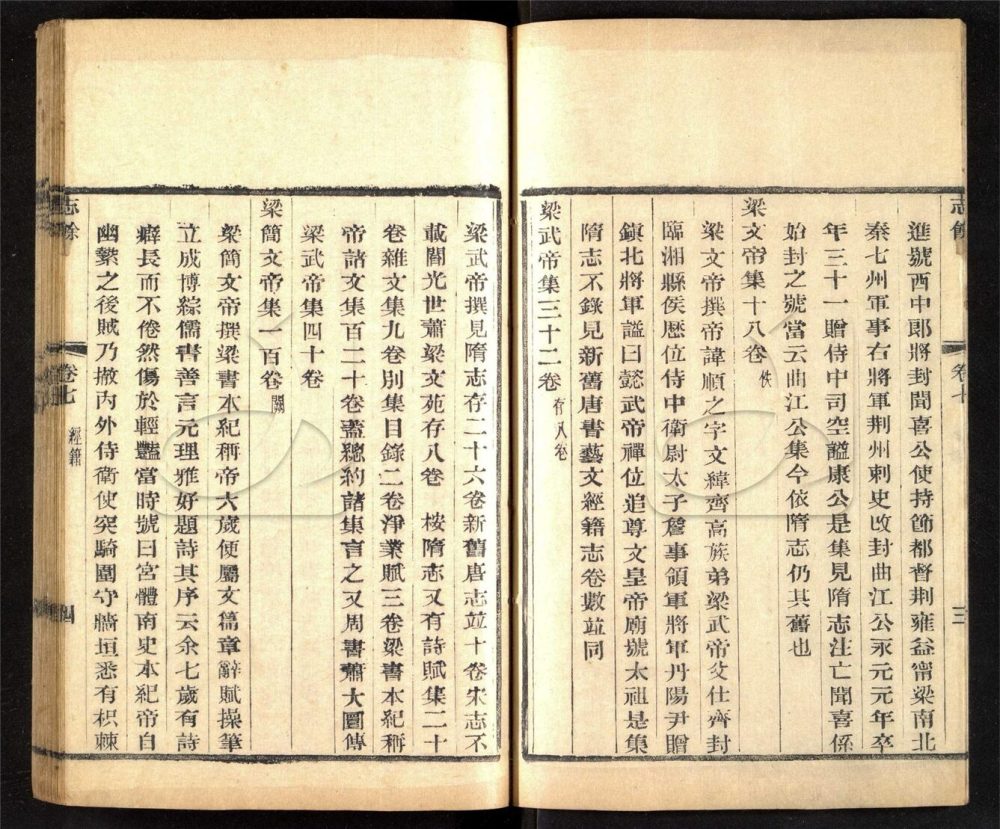 志餘
卷七
三
進號西中郎將封聞喜公使持節都督荆雍益甯梁南北
秦七州軍事右將軍荆州刺史改封曲江公永元元年卒
年三十一贈侍中司空諡康公是集見隋志注亡聞喜係
始封之號當云曲江公集今依隋志仍其舊也
梁文帝集十八卷佚
梁文帝撰帝諱順之字文緯齊高族弟梁武帝父仕齊封
臨湘縣侯歴位侍中衛尉太子詹事領軍將軍丹陽尹贈
鎮北將軍謚曰懿武帝禪位追尊文皇帝廟號太祖是集
隋志不錄見新舊唐書藝文經籍志卷數竝同
梁武帝集三十二卷存八卷
梁武帝撰見隋志存二十六卷新舊唐志竝十卷宋志不
載閣光世蕭梁文苑存八卷 桉隋志又有詩賦集二十
卷雜文集九卷別集目錄二卷淨業賦三卷梁書本紀稱
帝諸文集百二十卷蓋總約諸集言之又周書蕭大圜傳
梁武帝集四十卷
梁簡文帝集一百卷闕
梁簡文帝撰梁書本紀稱帝六歲便屬文篇章辭賦操筆
立成博綜儒書善言元理雅好題詩其序云余七歲有詩
癖長而不倦然傷於輕豔當時號曰宮體南史本紀帝自
幽縶之後賊乃撤內外侍衛使突騎圍守牆垣悉有枳棘
志餘
卷七
經籍
四